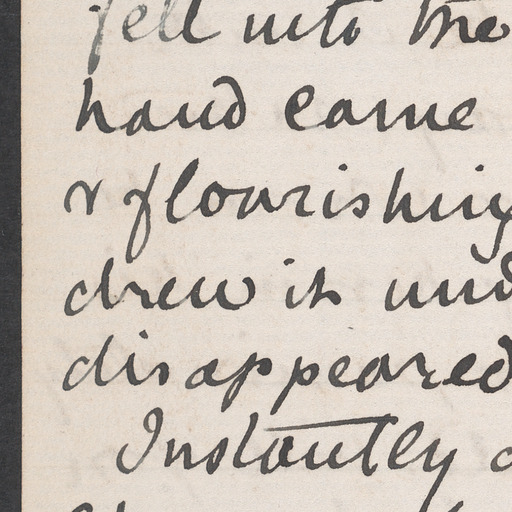 fell into the
hand came
& flourishing
drew it und
disappeared
Instantly